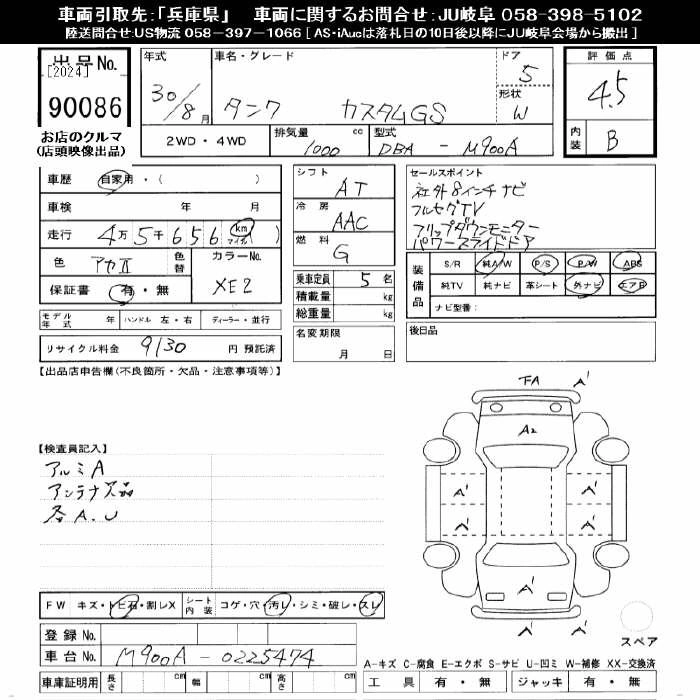 車両引取先:「兵庫県」 車両に関するお問合せ:JU岐阜 058-398-5102
陸送問合せ:US物流 058-397-1066 [ AS・iAucは落札日の10日後以降にJU岐阜会場から搬出 ]
出品No.
[2024]
90086
お店のクルマ
(店頭映像出品)
年式
30/8月
車名・グレード
タンク カスタムGS
ドア
5
形状
W
評価点
4.5
内装
B
2WD・4WD
排気量
1000 cc
型式
DBA - M900A
車歴 自家用・( )
車検 年 月
走行 4万5千656 km マイル( )
色 アカⅡ
色替
カラーNo.
XE2
保証書 有・無
モデル年式 年
ハンドル 左・右
ディーラー・並行
リサイクル料金 9130 円 預託済
シフト
AT
冷房
AAC
燃料
G
乗車定員 5 名
積載量 kg
総重量 kg
名変期限
月 日
セールスポイント
社外8インチナビ
フルセグTV
フリップダウンモニター
パワースライドドア
装備品
S/R 純A/W P/S P/W ABS
純TV 純ナビ 革シート 外ナビ エアB
ナビ型番:
後日品
【出品店申告欄(不良箇所・欠品・注意事項等)】
【検査員記入】
アルミA
アンテナ欠品
各A.U
FA A'
A2
A' A'
A' A'
A'
A'
スペア
FW キズ・トビ石・割レX
シート内装
コゲ・穴・汚レ・シミ・破レ・スレ
登録No.
車台No. M900A - 0225474
車庫証明用 長さ cm 幅 cm 高さ cm
A-キズ C-腐食 E-エクボ S-サビ U-凹ミ W-補修 XX-交換済
工具 有・無 ジャッキ 有・無